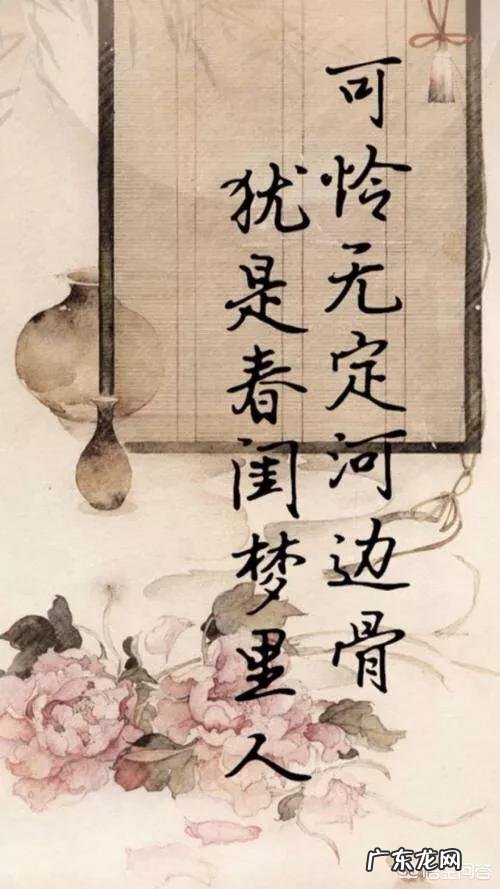 可怜无定河边骨
犹是春闺梦里人
广东龙网
悟空问答